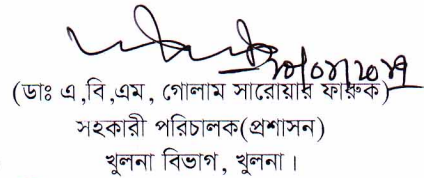 (ডাঃ এ,বি,এম, গোলাম সারোয়ার ফারুক)
সহকারী পরিচালক(প্রশাসন)
খুলনা বিভাগ, খুলনা।